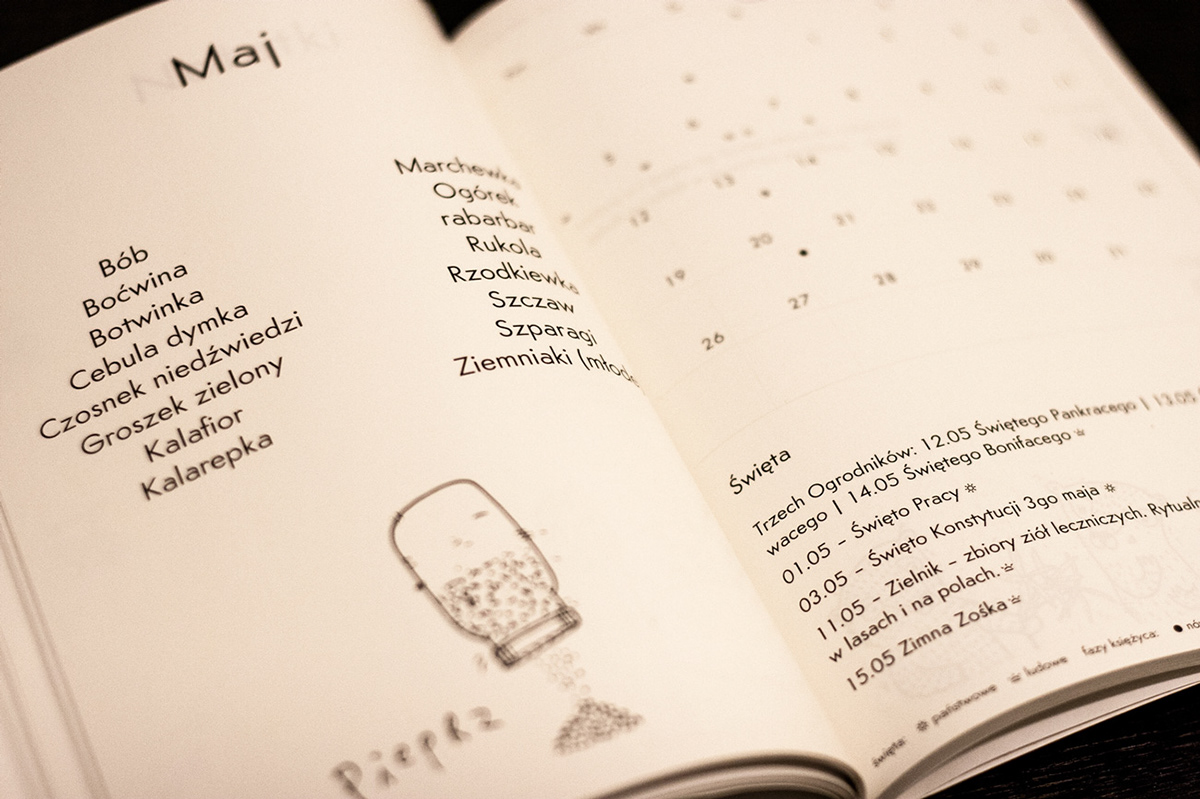 Maj
Bób
Boćwina
Botwinka
Cebula dymka
Czosnek niedźwiedzi
Groszek zielony
Kalafior
Kalarepka
Marchewka
Ogórek
rabarbar
Rukola
Rzodkiewka
Szczaw
Szparagi
Ziemniaki (młode
Pieprz
12 13 14
19 20 21
26 27 28 29
Święta
Trzech Ogrodników: 12.05 Świętego Pankracego | 13.05
wacego | 14.05 Świętego Bonifacego
01.05 – Święto Pracy
03.05 – Święto Konstytucji 3go maja
11.05 – Zielnik – zbiory ziół leczniczych. Rytualn
w lasach i na polach.
15.05 Zimna Zośka
święta: państwowe ludowe fazy księżyca: nów